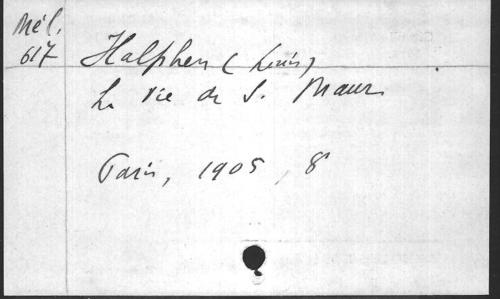 Mél.
617
Halphen (Louis)
La Vie de S. Maur.
Paris, 1905, 8°